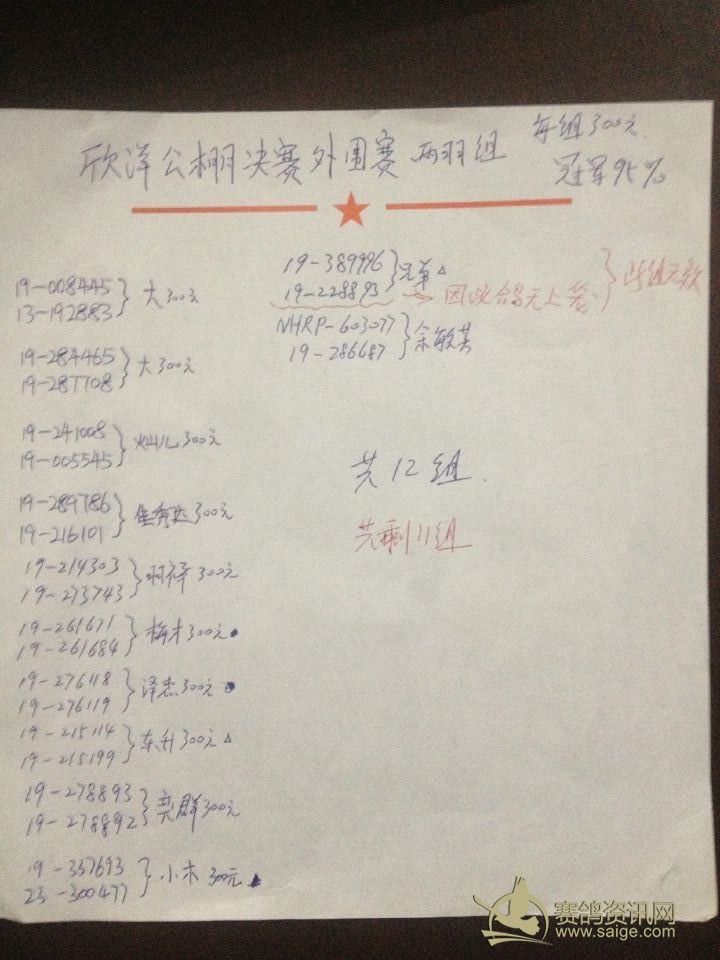 欣洋公棚决赛外围赛 两羽组
每组300元
冠军95%
19-008445
13-192883
大300元
19-284465
19-287708
大300元
19-241008
19-005545
灿儿300元
19-289786
19-216101
300元
19-214303
19-273743
羽祥300元
19-261671
19-261684
梅木300元
19-276118
19-276119
泽杰300元
19-215114
19-215199
东升300元
19-278893
19-278892
奕群300元
19-357693
23-300477
小木300元
19-389996
19-228893
兄弟
因此鸽无上笼
此组无效
NHRP-603077
19-286687
余敏芸
共12组
共剩11组
赛鸽资讯网
www.saige.com